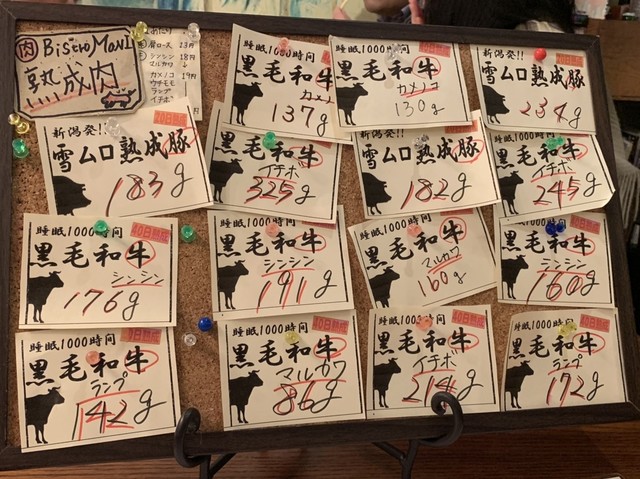 肉 Bistro Man1
熟成肉
肩ロース 13円
シンシン 18円
マルカワ
カメノコ 19円
ウチモモ
ランプ
イチボ
睡眠1000時間
黒毛和牛
カメノコ
137g
睡眠1000時間
黒毛和牛
カメノコ
130g
新潟発!!
雪ムロ熟成豚
234g
新潟発!!
雪ムロ熟成豚
183g
黒毛和牛
イチボ
325g
新潟発!!
雪ムロ熟成豚
182g
睡眠1000時間
黒毛和牛
イチボ
245g
睡眠1000時間
40日熟成
黒毛和牛
シンシン
176g
睡眠1000時間
黒毛和牛
シンシン
191g
黒毛和牛
マルカワ
160g
睡眠1000時間
黒毛和牛
シンシン
160g
睡眠1000時間
黒毛和牛
ランプ
142g
睡眠1000時間
40日熟成
黒毛和牛
マルカワ
86g
40日熟成
黒毛和牛
イチボ
214g
睡眠1000時間
黒毛和牛
ランプ
172g